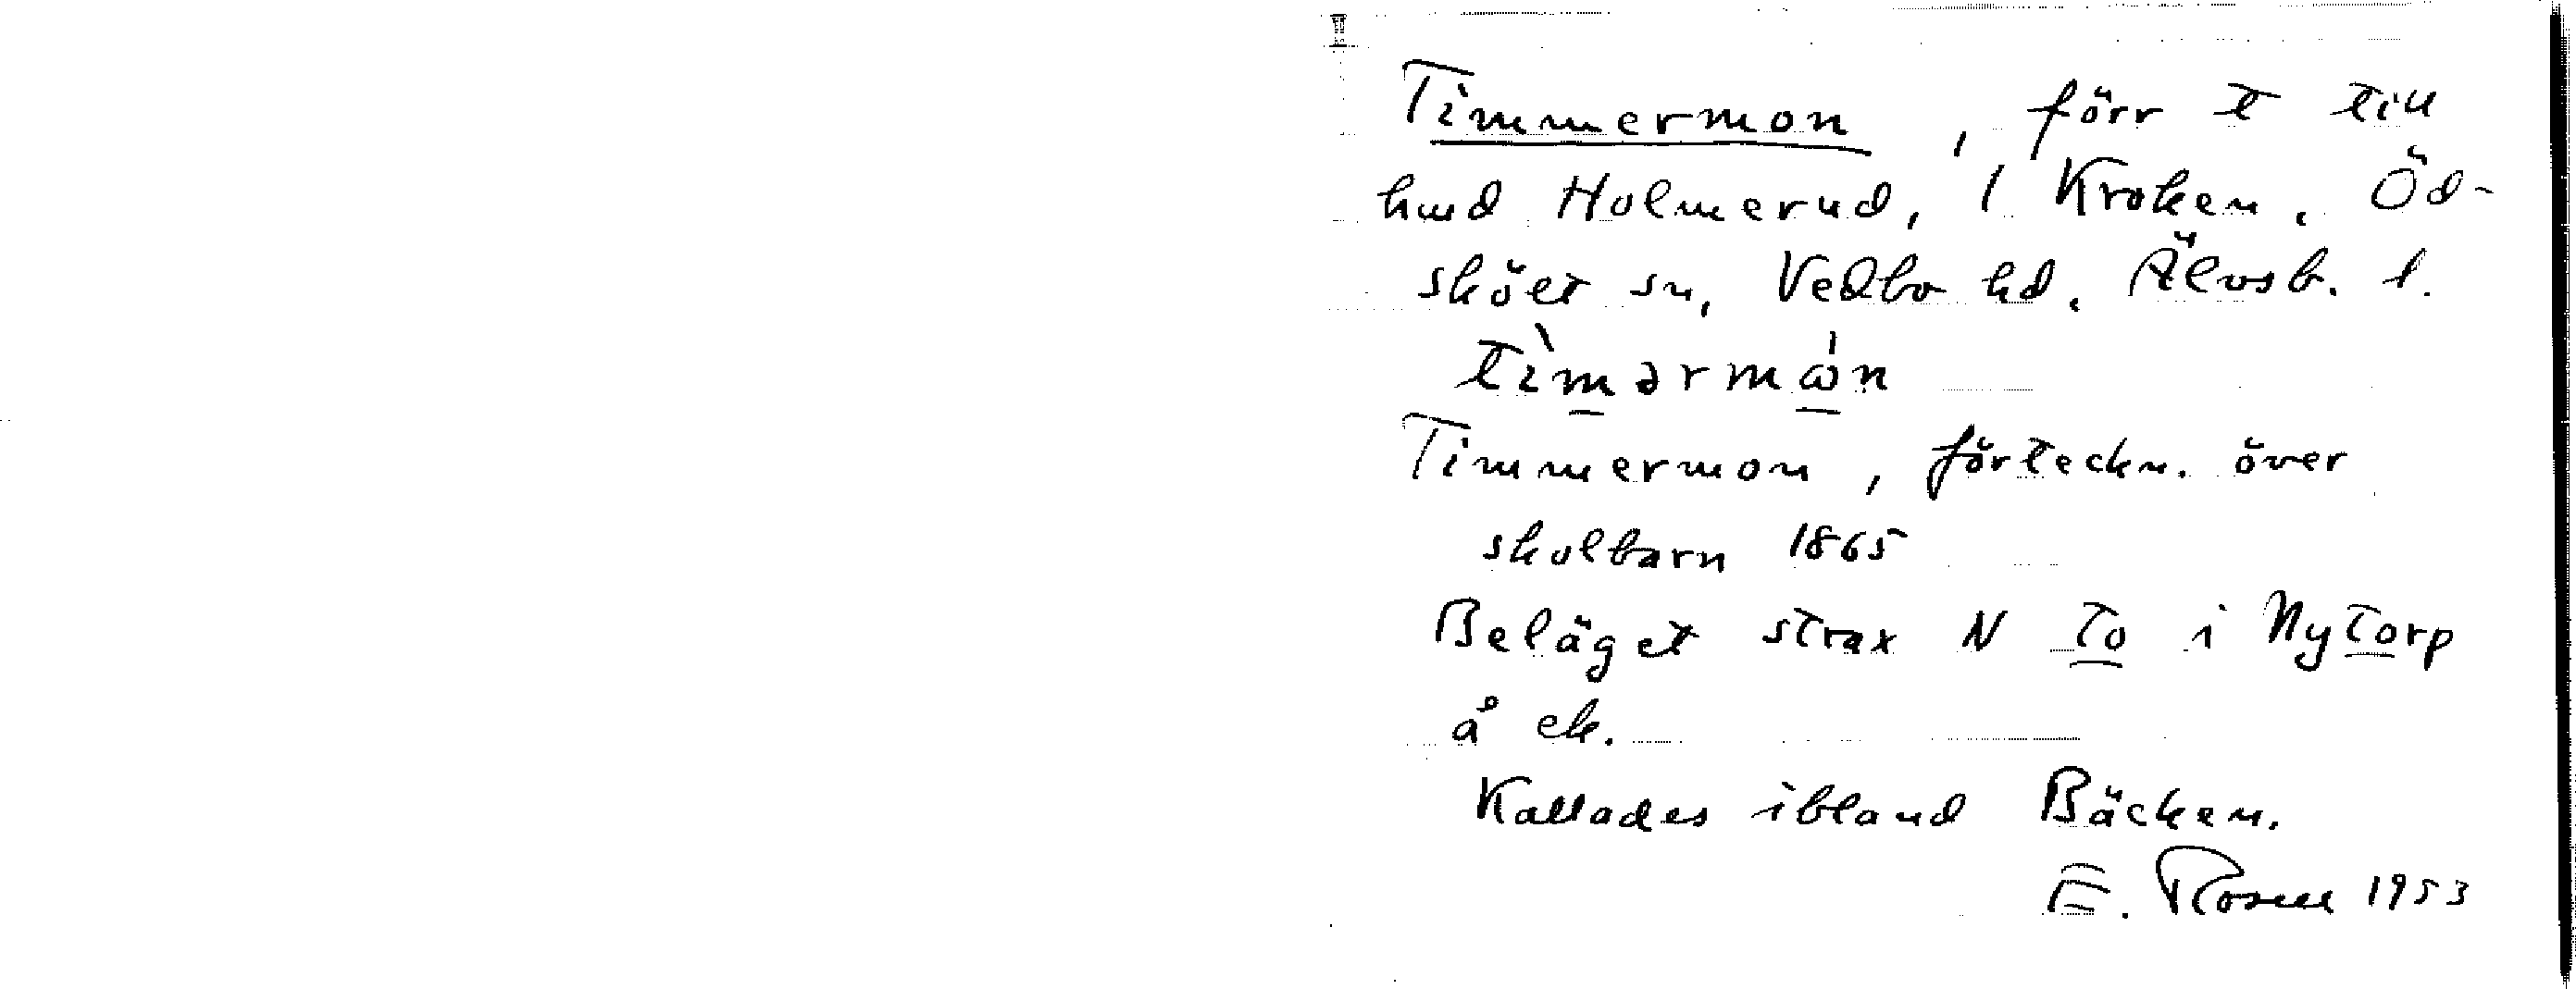 Timmermon, förr t till
hmd Holmerud, 1 Kroken, Öd-
sköet sn, Vedbo hd, Älvsb. l.
tìmərmώn
Timmermon, förteckn. över
skolbarn 1865
Beläget strax N To i Nytorp
å ek.
Kallades ibland Bäcken.
E. Rosell 1953